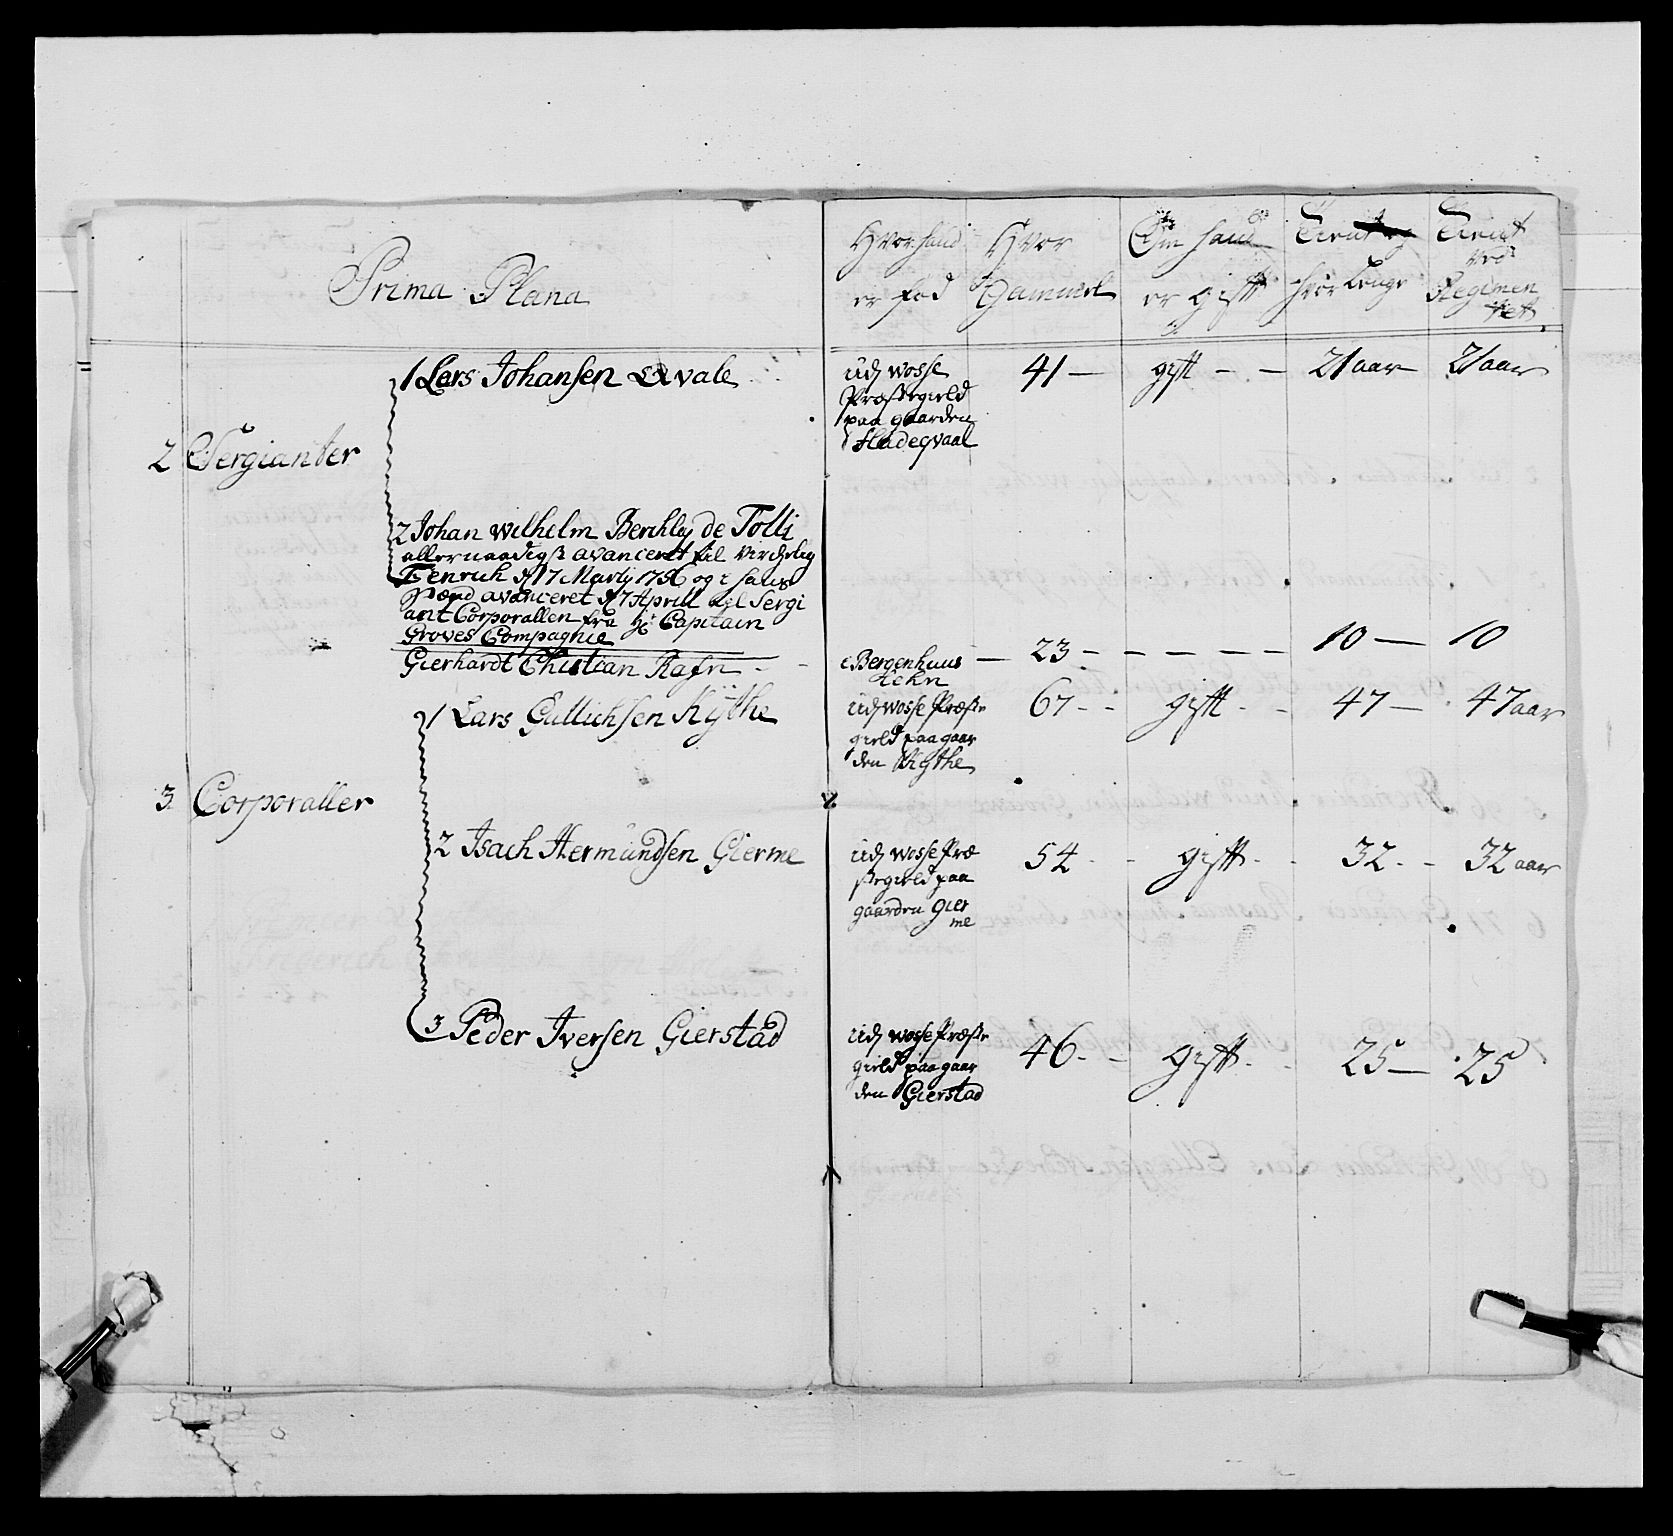 Prima Plana
Hvor hand er fød
Hvor Gammel
Om hand er gift
Tient hvor lenge
Tient ved Regimentett
2 Sergianter
1 Lars Johansen Qvale
ud wosse
Præstegield
paa gaarden
Hadeqvaal
41 — gift - - 21 aar — 21 aar
2 Johan Wilhelm Berchly de Tolli
allernaadigst avanceret til Virchelig
Fenrich d 17 Martij 1756 og i hans
stæd avanceret d 7 Aprill til Sergi
ant Corporallen fra Hr Capitain
Groves Compagnie
Gierhardt Christian Rafn - -
Bergenhuus — 23 - — — — — 10 — 10
Lehn
3 Corporaller
1 Lars Gullichsen Kÿthe
ud wosse Præste
gield paa gaar
den Kythe
67 - - gift - - 47 — 47 aar
2 Isach Hermundsen Gierme
ud wosse Præ
stegield paa
gaarden Gier
me
54 - - gift - - 32 - - 32 aar
3 Peder Iversen Gierstad
ud wosse Præste
gield paa gaar
den Gierstad
46 - - gift - - 25 — 25